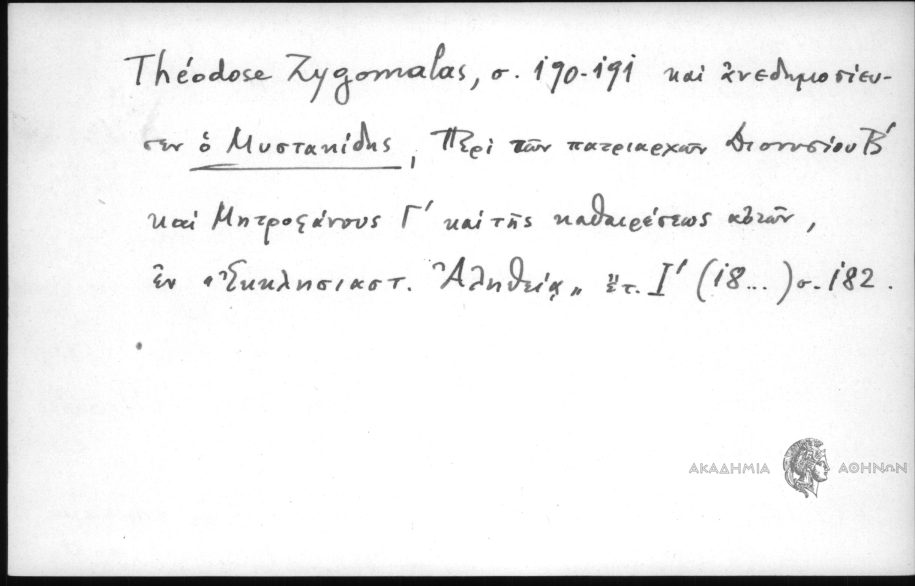 Théodose Zygomalas, σ. 190-191 καὶ ἀνεδημοσίευ-
σεν ὁ Μυστακίδης, Περὶ τῶν πατριαρχῶν Διονυσίου Β΄
καὶ Μητροφάνους Γ΄ καὶ τῆς καθαιρέσεως αὐτῶν,
ἐν «Ἐκκλησιαστ. Ἀληθείᾳ» ἔτ. Ι΄ (18...) σ. 182.
ΑΚΑΔΗΜΙΑ ΑΘΗΝΩΝ